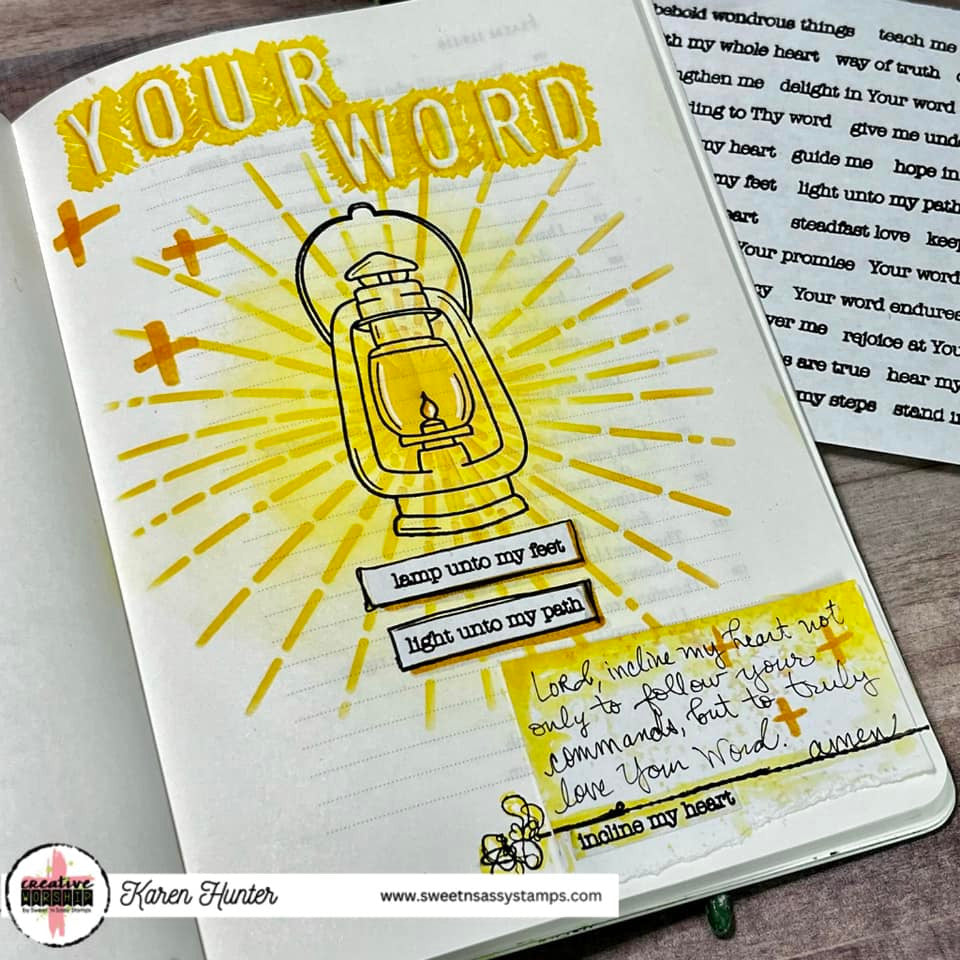 YOUR
WORD
lamp unto my feet
light unto my path
Lord, incline my heart not
only to follow your
commands, but to truly
love Your Word. amen
incline my heart
behold wondrous things teach me
my whole heart way of truth
me delight in Your word
to Thy word give me
my heart guide me hope in
my feet light unto my path
steadfast love
Your promise Your word
Your word
me rejoice at
are true hear my
my steps stand in
creative
WORSHIP
by Sweet 'n Sassy Stamps
Karen Hunter
www.sweetnsassystamps.com